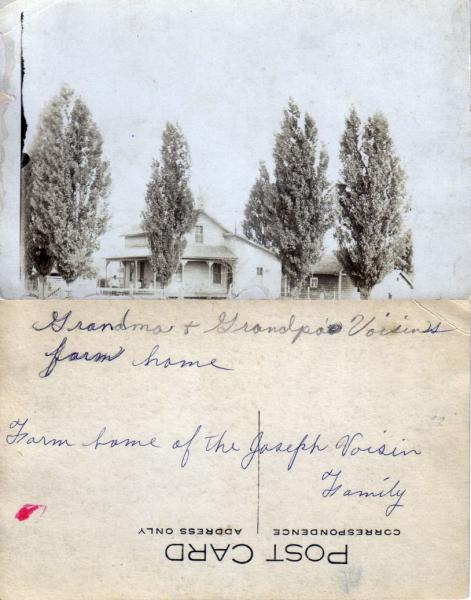 Grandma & Grandpa's Voisin's
farm home
Farm home of the Joseph Voisin
Family
CORRESPONDENCE ADDRESS ONLY
POST CARD